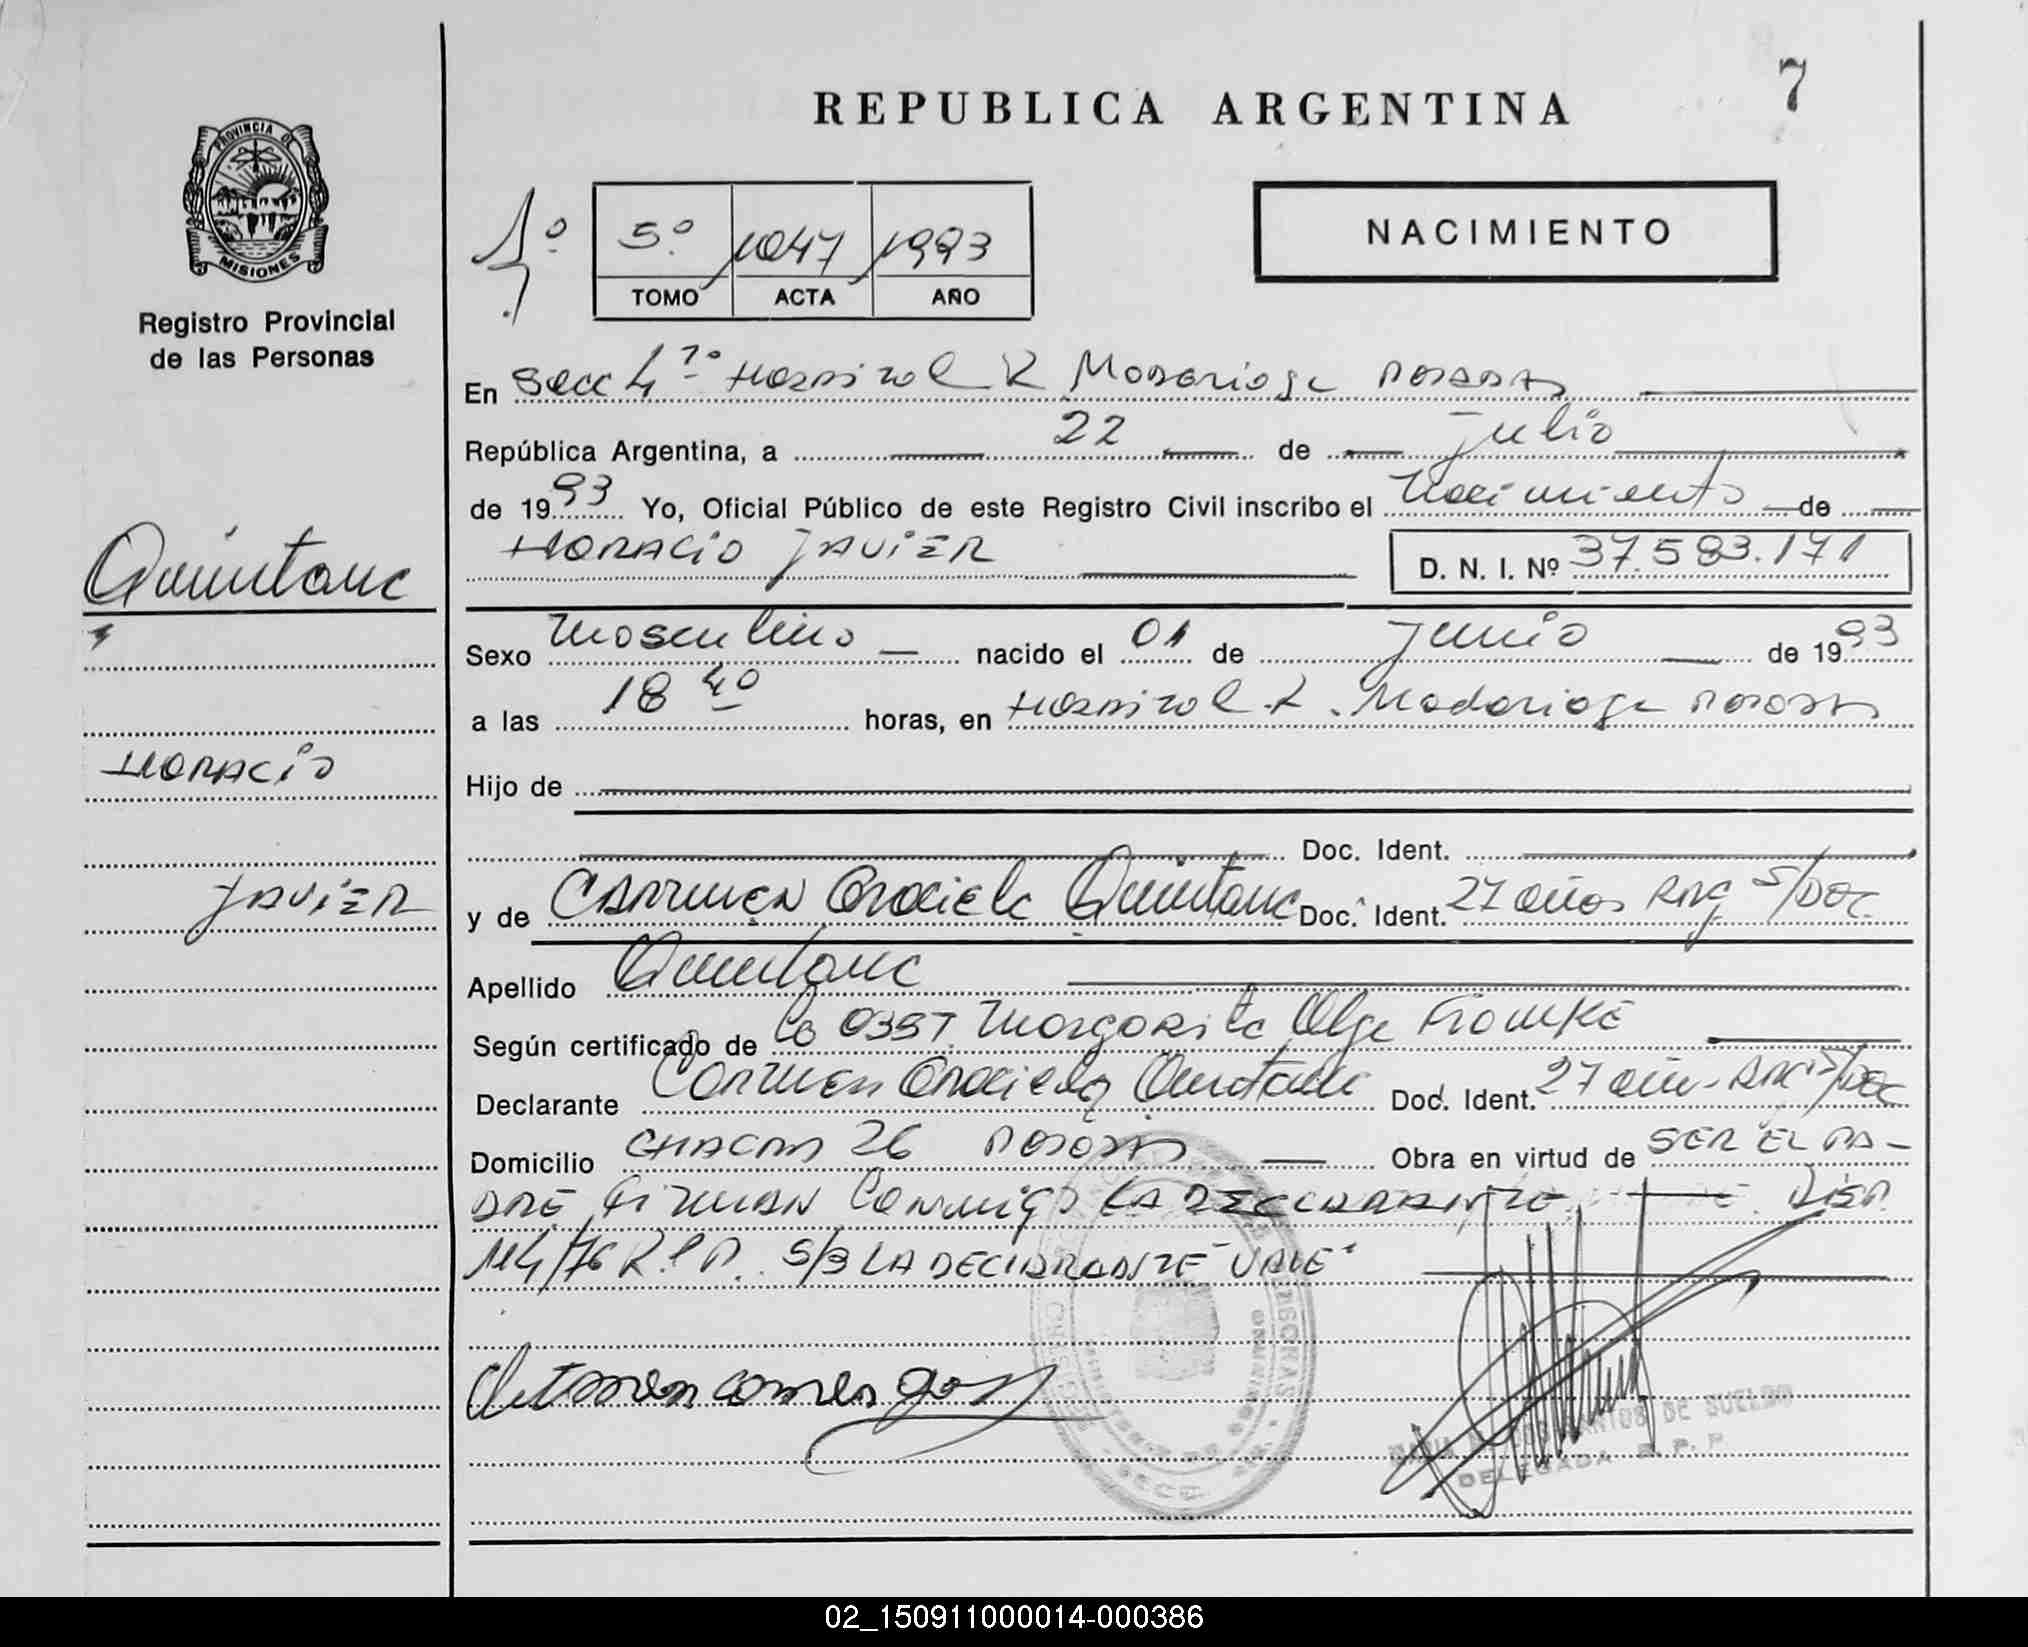 7
REPUBLICA ARGENTINA
PROVINCIA DE
MISIONES
Registro Provincial
de las Personas
NACIMIENTO
1º 5º 1047 1993
TOMO ACTA AÑO
En Secc 4º Hospital R Madariaga Posadas
República Argentina, a 22 de julio
de 1993 Yo, Oficial Público de este Registro Civil inscribo el Nacimiento de
HORACIO JAVIER D. N. I. Nº 37.583.171
Quintana
Sexo Masculino nacido el 01 de Junio de 1993
a las 18 40 horas, en Hospital R. Madariaga Posadas
HORACIO
Hijo de
Doc. Ident.
JAVIER
y de CARMEN Graciela Quintana Doc. Ident. 27 años ARG S/DOC.
Apellido Quintana
Según certificado de 0357 Margarita Olga
Declarante Carmen Graciela Quintana Doc. Ident. 27 años ARG S/DOC
Domicilio CHACRA 26 POSADAS Obra en virtud de SER EL PA-
DRE FIRMAN Conmigo LA DECLARANTE DISP.
114/76 R.P.P. S/B LA DECLARANTE "VALE"
SANTOS DE SUELDO
DELEGADA R. P. P.
02_150911000014-000386